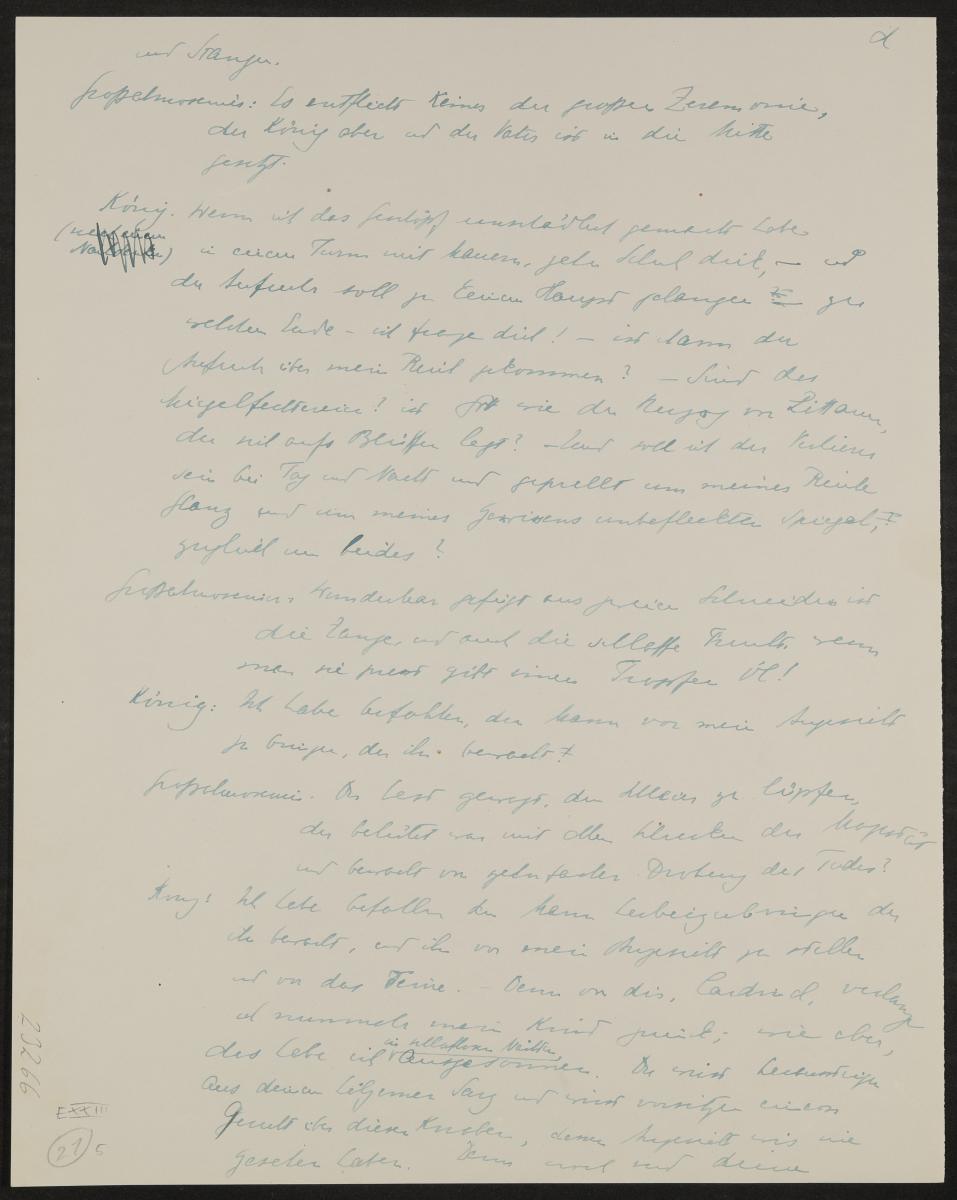 d
und Stangen.
Großalmosenier: Es entflieht Keiner der großen Zeremonie,
der König aber und der Vater ist in die Mitte
gesetzt.
König. Wenn ich das Geschöpf unschädlich gemacht habe
(nach einem
in einem Turm mit Mauern, zehn Schuh dick, – und
der Aufruhr soll zu seinem Haupt gelangen zu
welchem Ende – ich frage dich! – ist dann der
Aufruhr über mein Reich gekommen? – Sind das
Spiegelfechtereien? ist Gott wie der Herzog von Littauen,
der sich aufs Bluffen legt? – Und soll ich der Verlierer
sein bei Tag und Nacht und geprellt um meines Reiches
Glanz und um meines Gewissens unbefleckten Spiegel,
zugleich um beides?
Großalmosenier: Wunderbar gefügt aus zweien Schneiden ist
die Zange, und auch die schlaffe Frucht, wenn
man sie presst gibt einen Tropfen Öl!
König: Ich habe befohlen, den Mann vor mein Angesicht
zu bringen, der ihn bewacht!
Großalmosenier. Du hast gewagt, den Schleier zu lüpfen,
der behütet war mit allen Schrecken der Majestät
und bewacht von zehnfacher Drohung des Todes?
König: Ich habe befohlen den Mann herbeizubringen der
ihn bewacht, und ihn vor mein Angesicht zu stellen
und vor das Deine. – Denn von dir, Cardinal, verlange
ich nunmehr mein Kind zurück; wie aber,
in schlaflosen Nächten
das habe ich ausgesonnen. Du wirst heraussteigen
aus deinem hölzernen Sarg und wirst vorsitzen einem
Gericht über diesen Knaben, dessen Angesicht wir nie
gesehen haben. Denn noch sind deine
23266
EXXIII
21
5